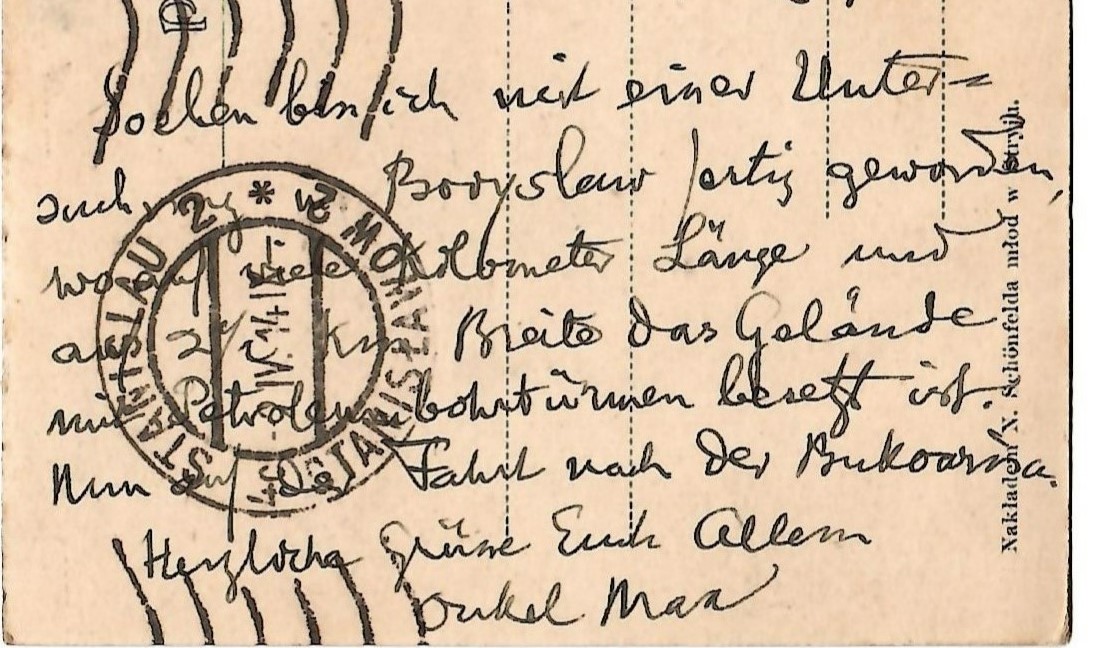 Soeben bin ich mit einer Unter=
suchung Boryslaw fertig geworden,
wo auf viele Kilometer Länge und
auf 2 km Breite das Gelände
mit Petroleumbohrtürmen besetzt ist.
Nun auf der Fahrt nach der Bukowina.
Herzliche Grüsse Euch Allen
Onkel Max
STANISLAU 2 * STANISŁAWÓW 2
Nakładem N. Schönfelda młod w Stryju.